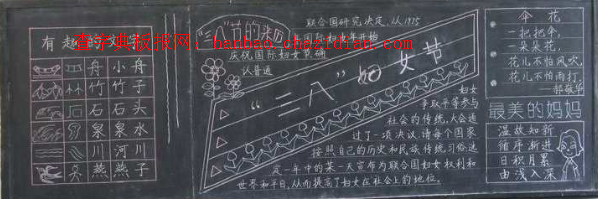 有趣的文字
舟 小舟
竹 竹子
石 石头
泉 泉水
川 河川
燕 燕子
查字典板报网：banbao.chazidian.com
"三八"节的来历
联合国研究决定，从1975
年国际妇女年开始
庆祝国际妇女节
认普遍
"三八"妇女节
妇女
争取平等参与
社会的传统，大会通
过了一项决议，请每个国家
按照自己的历史和民族传统习俗选
定一年中的某一天宣布为联合国妇女权利和
世界和平日，从而提高了妇女在社会上的地位。
伞花
一把把伞，
一朵朵花，
花儿不怕风吹，
花儿不怕雨打，
最美的妈妈
温故知新
循序渐进
日积月累
由浅入深